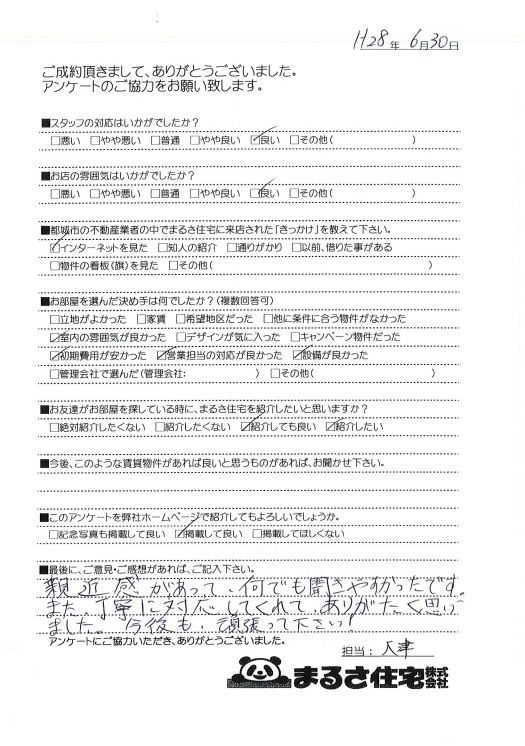 H28年 6月30日
ご成約頂きまして、ありがとうございました。
アンケートのご協力をお願い致します。
■スタッフの対応はいかがでしたか？
□悪い □やや悪い □普通 □やや良い ☑良い □その他( )
■お店の雰囲気はいかがでしたか？
□悪い □やや悪い □普通 □やや良い ☑良い □その他( )
■都城市の不動産業者の中でまるさ住宅に来店された「きっかけ」を教えて下さい。
☑インターネットを見た □知人の紹介 □通りがかり □以前、借りた事がある
□物件の看板(旗)を見た □その他( )
■お部屋を選んだ決め手は何でしたか？(複数回答可)
□立地がよかった □家賃 □希望地区だった □他に条件に合う物件がなかった
☑室内の雰囲気が良かった □デザインが気に入った □キャンペーン物件だった
☑初期費用が安かった ☑営業担当の対応が良かった ☑設備が良かった
□管理会社で選んだ(管理会社: ) □その他( )
■お友達がお部屋を探している時に、まるさ住宅を紹介したいと思いますか？
□絶対紹介したくない □紹介したくない ☑紹介しても良い ☑紹介したい
■今後、このような賃貸物件があれば良いと思うものがあれば、お聞かせ下さい。
■このアンケートを弊社ホームページで紹介してもよろしいでしょうか。
□記念写真も掲載して良い ☑掲載して良い □掲載してほしくない
■最後に、ご意見・ご感想があれば、ご記入下さい。
親近感があって、何でも聞きやすかったです。
また、丁寧に対応してくれて、ありがたく思い
ました。今後も、頑張って下さい！
アンケートにご協力いただき、ありがとうございました。
担当：
まるさ住宅株式会社